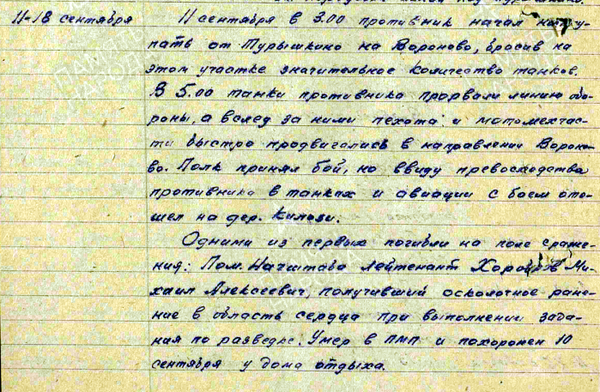 11-18 сентября
11 сентября в 3.00 противник начал насту-
пать от Турышкино на Вороново, бросив на
этом участке значительное количество танков.
В 5.00 танки противника прорвали линию обо-
роны, а вслед за ними пехота и мотомехчас-
ти быстро продвигались в направлении Вороно-
во. Полк принял бой, но ввиду превосходства
противника в танках и авиации с боем ото-
шел на дер. Келози.
Одними из первых погибли на поле сраже-
ния: Пом. Начштаба лейтенант Ми-
хаил Алексеевич, получивший осколочное ране-
ние в область сердца при выполнении зада-
ния по разведке. Умер в ПМП и похоронен 10
сентября у дома отдыха.